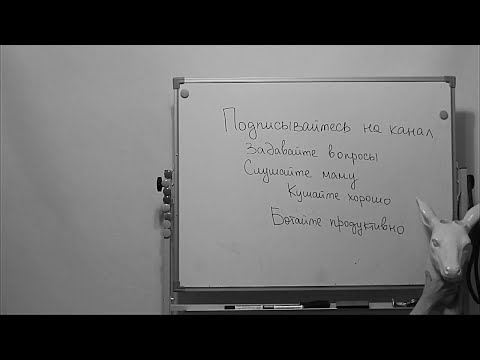 Подписывайтесь на канал,
Задавайте вопросы
Слушайте маму
Кушайте хорошо
Ботайте продуктивно